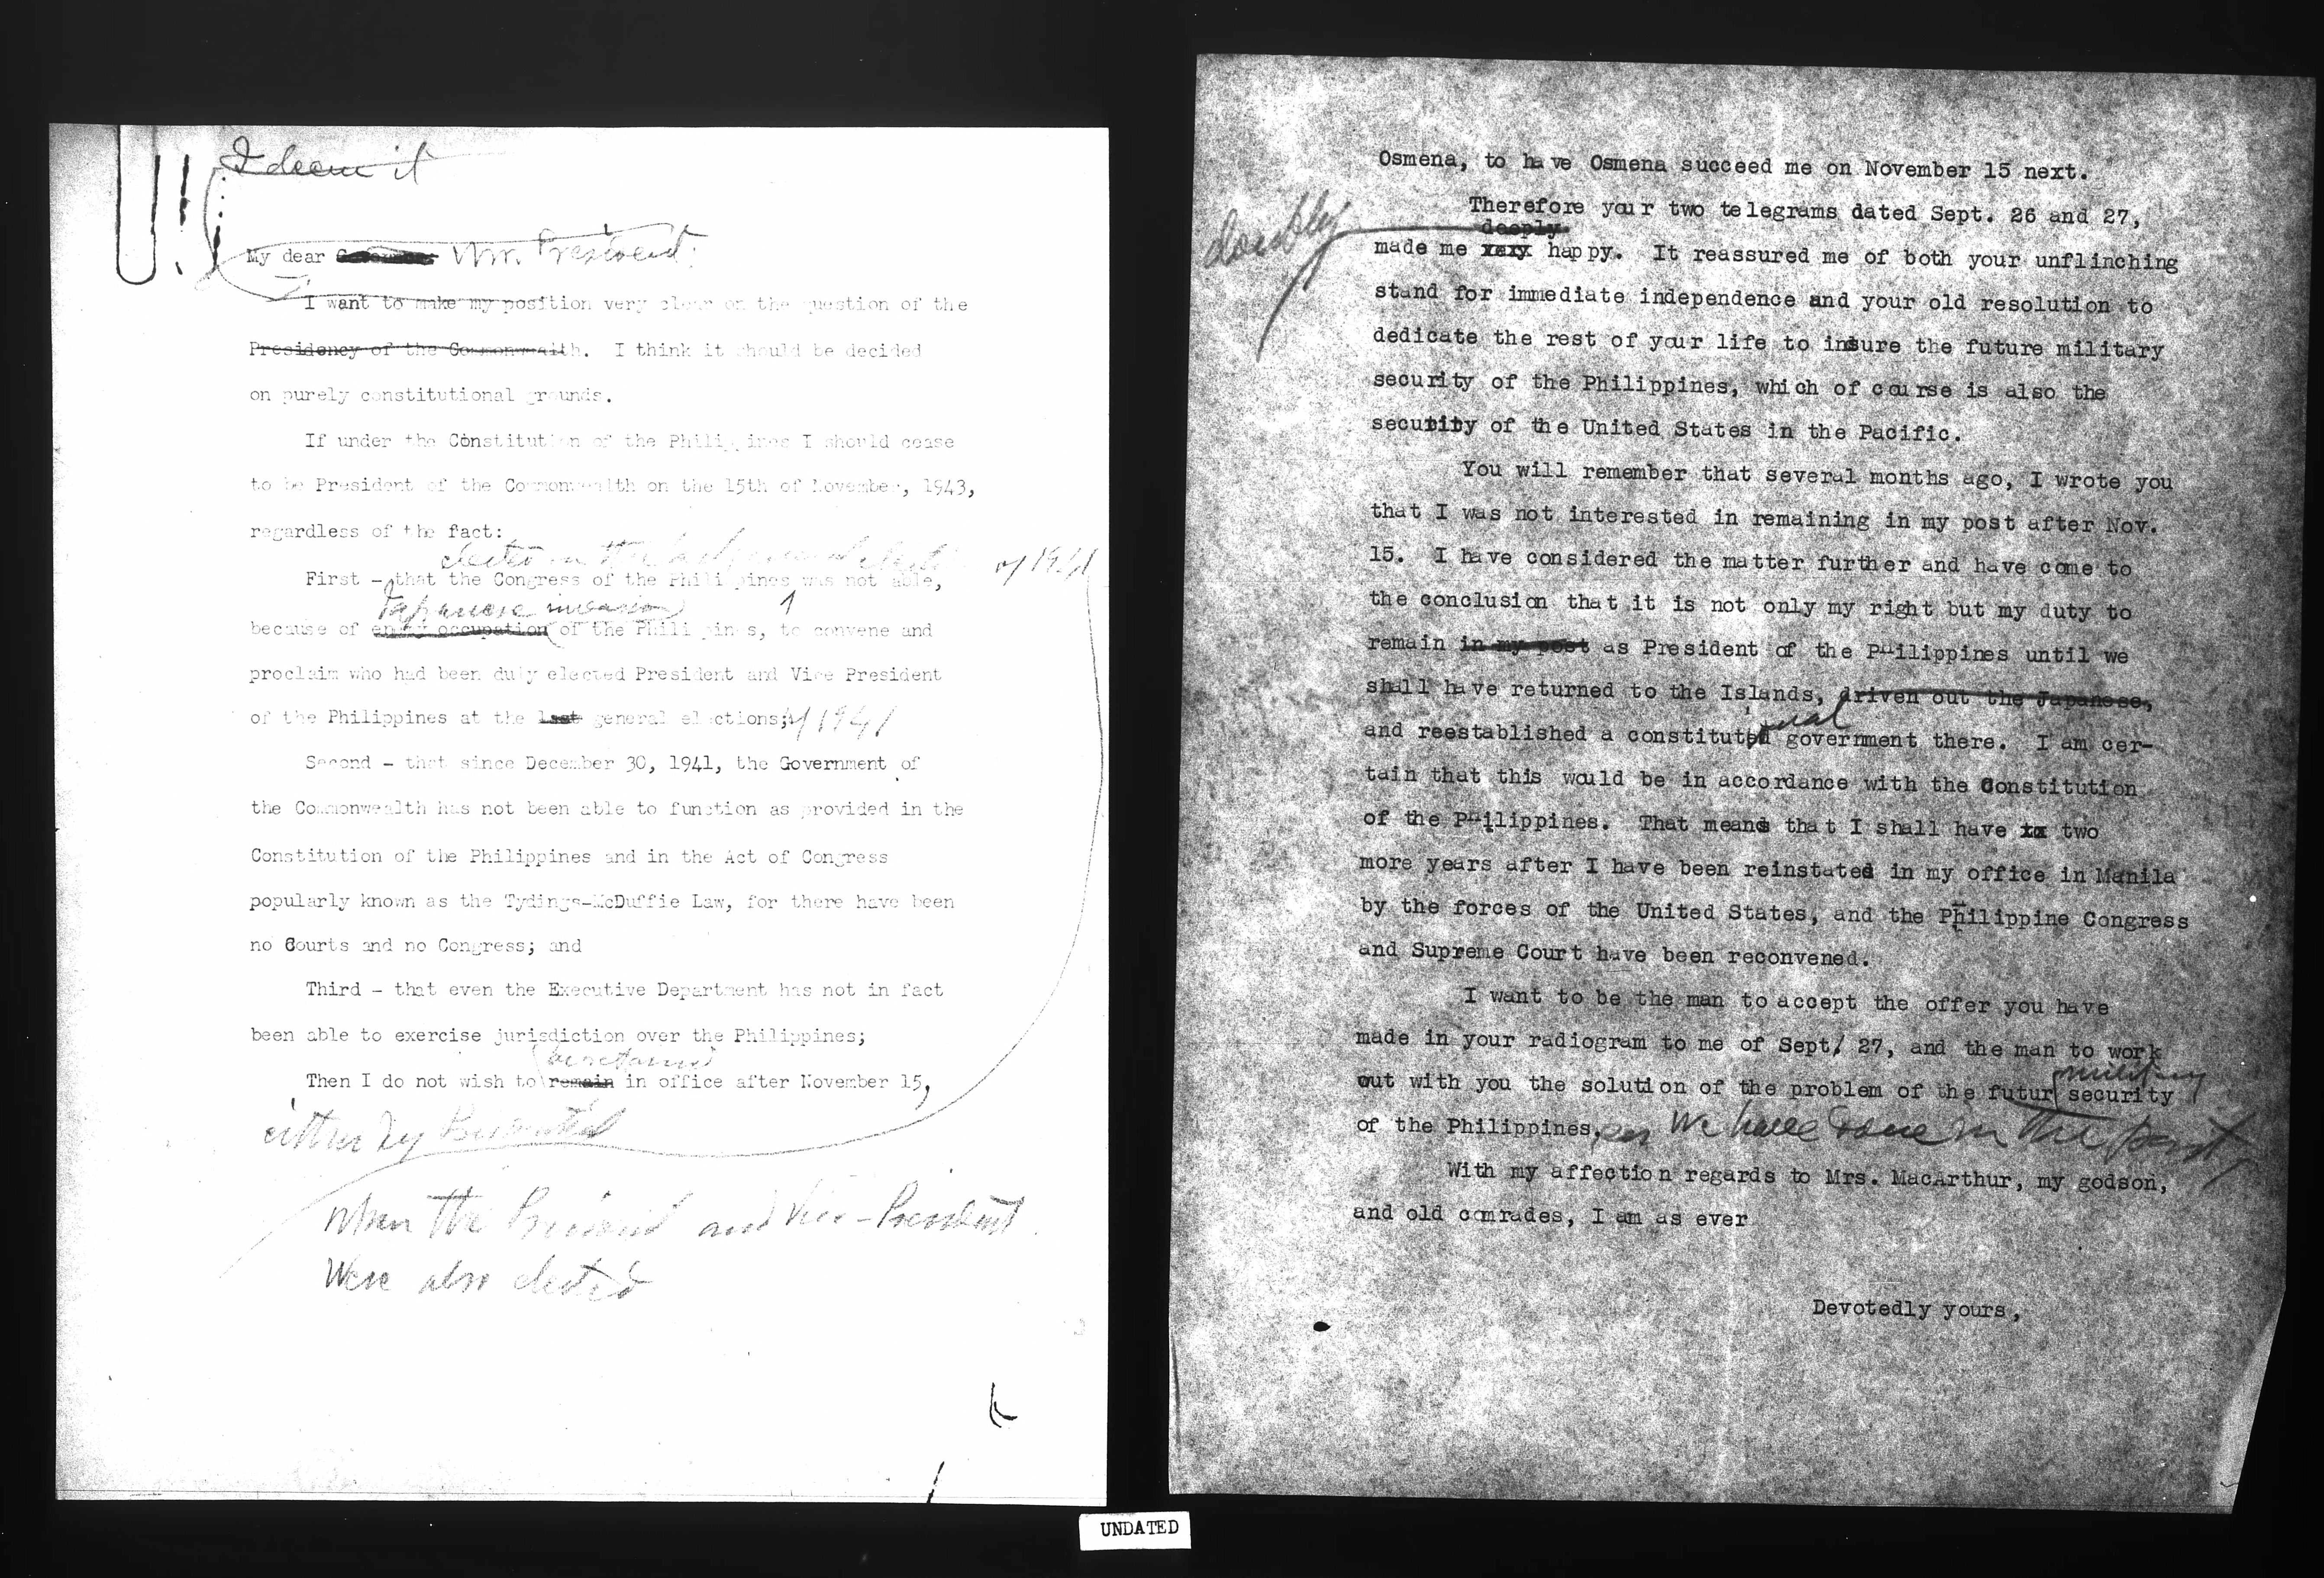 I deem it
My dear Mr. President:
I want to make my position very clear on the question of the
Presidency of the Commonwealth. I think it should be decided
on purely constitutional grounds.
If under the Constitution of the Philippines I should cease
to be President of the Commonwealth on the 15th of November, 1943,
regardless of the fact:
elected in the last general of 1941
First - that the Congress of the Philippines was not able,
Japanese invasion
because of enemy occupation of the Philippines, to convene and
proclaim who had been duly elected President and Vice President
of the Philippines at the last general elections; of 1941
Second - that since December 30, 1941, the Government of
the Commonwealth has not been able to function as provided in the
Constitution of the Philippines and in the Act of Congress
popularly known as the Tydings-McDuffie Law, for there have been
no Courts and no Congress; and
Third - that even the Executive Department has not in fact
been able to exercise jurisdiction over the Philippines;
be retained
Then I do not wish to remain in office after November 15,
either by
When the President and Vice-President
Were also elected
Osmena, to have Osmena succeed me on November 15 next.
Therefore your two telegrams dated Sept. 26 and 27,
doubly deeply
made me very happy. It reassured me of both your unflinching
stand for immediate independence and your old resolution to
dedicate the rest of your life to insure the future military
security of the Philippines, which of course is also the
security of the United States in the Pacific.
You will remember that several months ago, I wrote you
that I was not interested in remaining in my post after Nov.
15. I have considered the matter further and have come to
the conclusion that it is not only my right but my duty to
remain in my post as President of the Philippines until we
shall have returned to the Islands, driven out the Japanese,
onal
and reestablished a constituted government there. I am cer-
tain that this would be in accordance with the Constitution
of the Philippines. That means that I shall have to two
more years after I have been reinstated in my office in Manila
by the forces of the United States, and the Philippine Congress
and Supreme Court have been reconvened.
I want to be the man to accept the offer you have
made in your radiogram to me of Sept/ 27, and the man to work
military
out with you the solution of the problem of the futur security
of the Philippines, as we have done in the past.
With my affection regards to Mrs. MacArthur, my godson,
and old comrades, I am as ever
Devotedly yours,
UNDATED